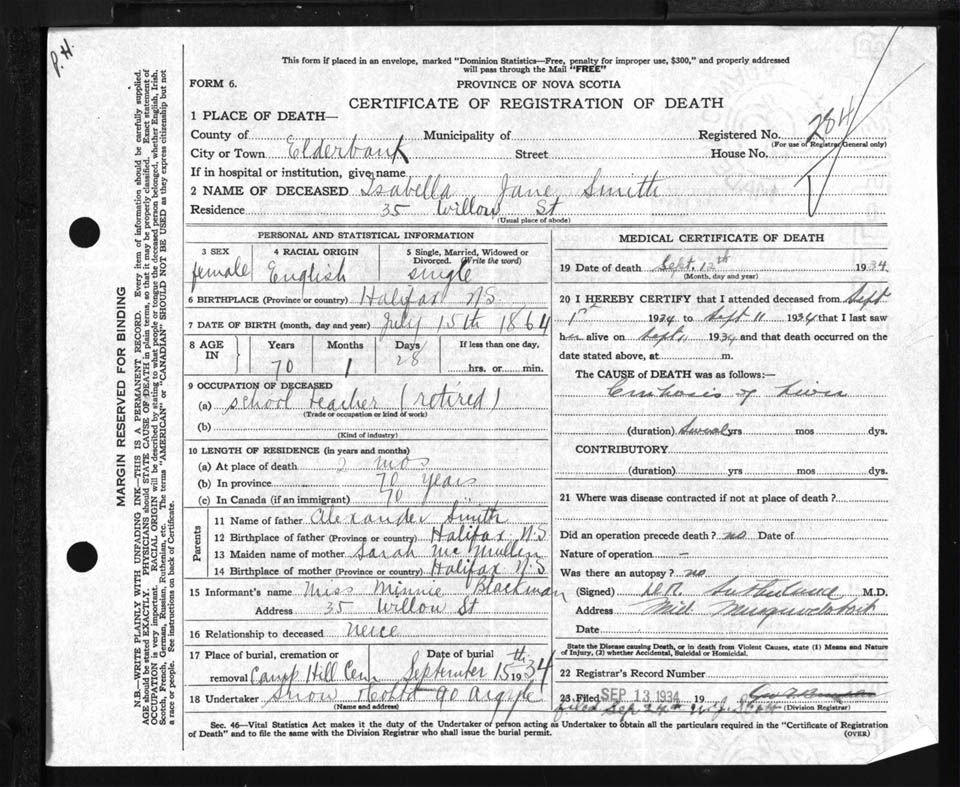 P. H.
This form if placed in an envelope, marked "Dominion Statistics—Free, penalty for improper use, $300," and properly addressed
will pass through the Mail "FREE"
FORM 6.
PROVINCE OF NOVA SCOTIA
CERTIFICATE OF REGISTRATION OF DEATH
1 PLACE OF DEATH—
County of Municipality of Registered No. 284
(For use of Registrar General only)
City or Town Elderbank Street House No.
If in hospital or institution, give name
2 NAME OF DECEASED Isabella Jane Smith
Residence 35 Willow St
(Usual place of abode)
PERSONAL AND STATISTICAL INFORMATION
3 SEX female
4 RACIAL ORIGIN English
5 Single, Married, Widowed or Divorced. (Write the word) single
6 BIRTHPLACE (Province or country) Halifax N.S.
7 DATE OF BIRTH (month, day and year) July 15th 1864
8 AGE IN Years Months Days If less than one day,
70 1 28 hrs. or min.
9 OCCUPATION OF DECEASED
(a) school teacher (retired)
(Trade or occupation or kind of work)
(b)
(Kind of industry)
10 LENGTH OF RESIDENCE (in years and months)
(a) At place of death 2 mos
(b) In province 70 years
(c) In Canada (if an immigrant) 70
Parents
11 Name of father Alexander Smith
12 Birthplace of father (Province or country) Halifax N S
13 Maiden name of mother Sarah McMullen
14 Birthplace of mother (Province or country) Halifax N.S
15 Informant's name Miss Minnie Blackman
Address 35 Willow St
16 Relationship to deceased neice
17 Place of burial, cremation or removal Camp Hill Cem
Date of burial September 15th 1934
18 Undertaker Snow 90 Argyle
(Name and address)
MEDICAL CERTIFICATE OF DEATH
19 Date of death Sept. 12th 1934
(Month, day and year)
20 I HEREBY CERTIFY that I attended deceased from Sept
1st 1934 to Sept 11 1934 that I last saw
her alive on Sept 1934 and that death occurred on the
date stated above, at m.
The CAUSE of DEATH was as follows:—
Cirrhosis of Liver
(duration) Several yrs mos dys.
CONTRIBUTORY
(duration) yrs mos dys.
21 Where was disease contracted if not at place of death?
Did an operation precede death? no Date of
Nature of operation —
Was there an autopsy? no
(Signed) Sutherland M.D.
Address Mid. Musquodoboit
Date
State the Disease causing Death, or in death from Violent Causes, state (1) Means and Nature
of Injury, (2) whether Accidental, Suicidal or Homicidal.
22 Registrar's Record Number
23 Filed SEP 13 1934 19
filed Sep 24th
(Division Registrar)
Sec. 46—Vital Statistics Act makes it the duty of the Undertaker or person acting as Undertaker to obtain all the particulars required in the "Certificate of Registration
of Death" and to file the same with the Division Registrar who shall issue the burial permit.
(OVER)
MARGIN RESERVED FOR BINDING
N.B.—WRITE PLAINLY WITH UNFADING INK—THIS IS A PERMANENT RECORD. Every item of information should be carefully supplied.
AGE should be stated EXACTLY. PHYSICIANS should STATE CAUSE OF DEATH in plain terms, so that it may be properly classified. Exact statement of
OCCUPATION is very important. RACIAL ORIGIN will be described by stating to what people or tongue the deceased person belonged, whether English, Irish,
Scotch, French, German, Russian, Ruthenian, etc. The terms "AMERICAN" or "CANADIAN" SHOULD NOT BE USED as they express citizenship but not
a race or people. See instructions on back of Certificate.